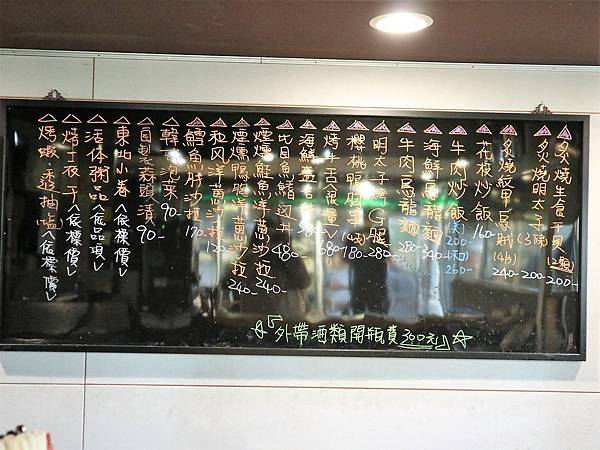 炙燒生食干貝(2顆) 200-
炙燒明太子(3隻) 200-
炙燒紋甲 240-
花枝炒飯 160-
牛肉炒飯(沙) 200- (和) 260-
海鮮烏龍麵 340-
牛肉烏龍麵 280-
明太子 280-
櫻桃鴨胸 180-
烤牛舌(限量) 680-
海鮮蓋 380-
比目魚鰭 480-
煙燻鮭魚洋蔥沙拉 240-
煙燻鴨胸洋蔥沙拉 240-
和風洋蔥沙拉 120
鱈魚肝沙拉 170
韓式泡菜 90-
自製蒜頭漬 90-
東北小卷<依標價>
活体粥品<依品項>
烤一夜干<依標價>
烤蝦.透抽<依標價>
☆『外帶酒類開瓶費300元』☆